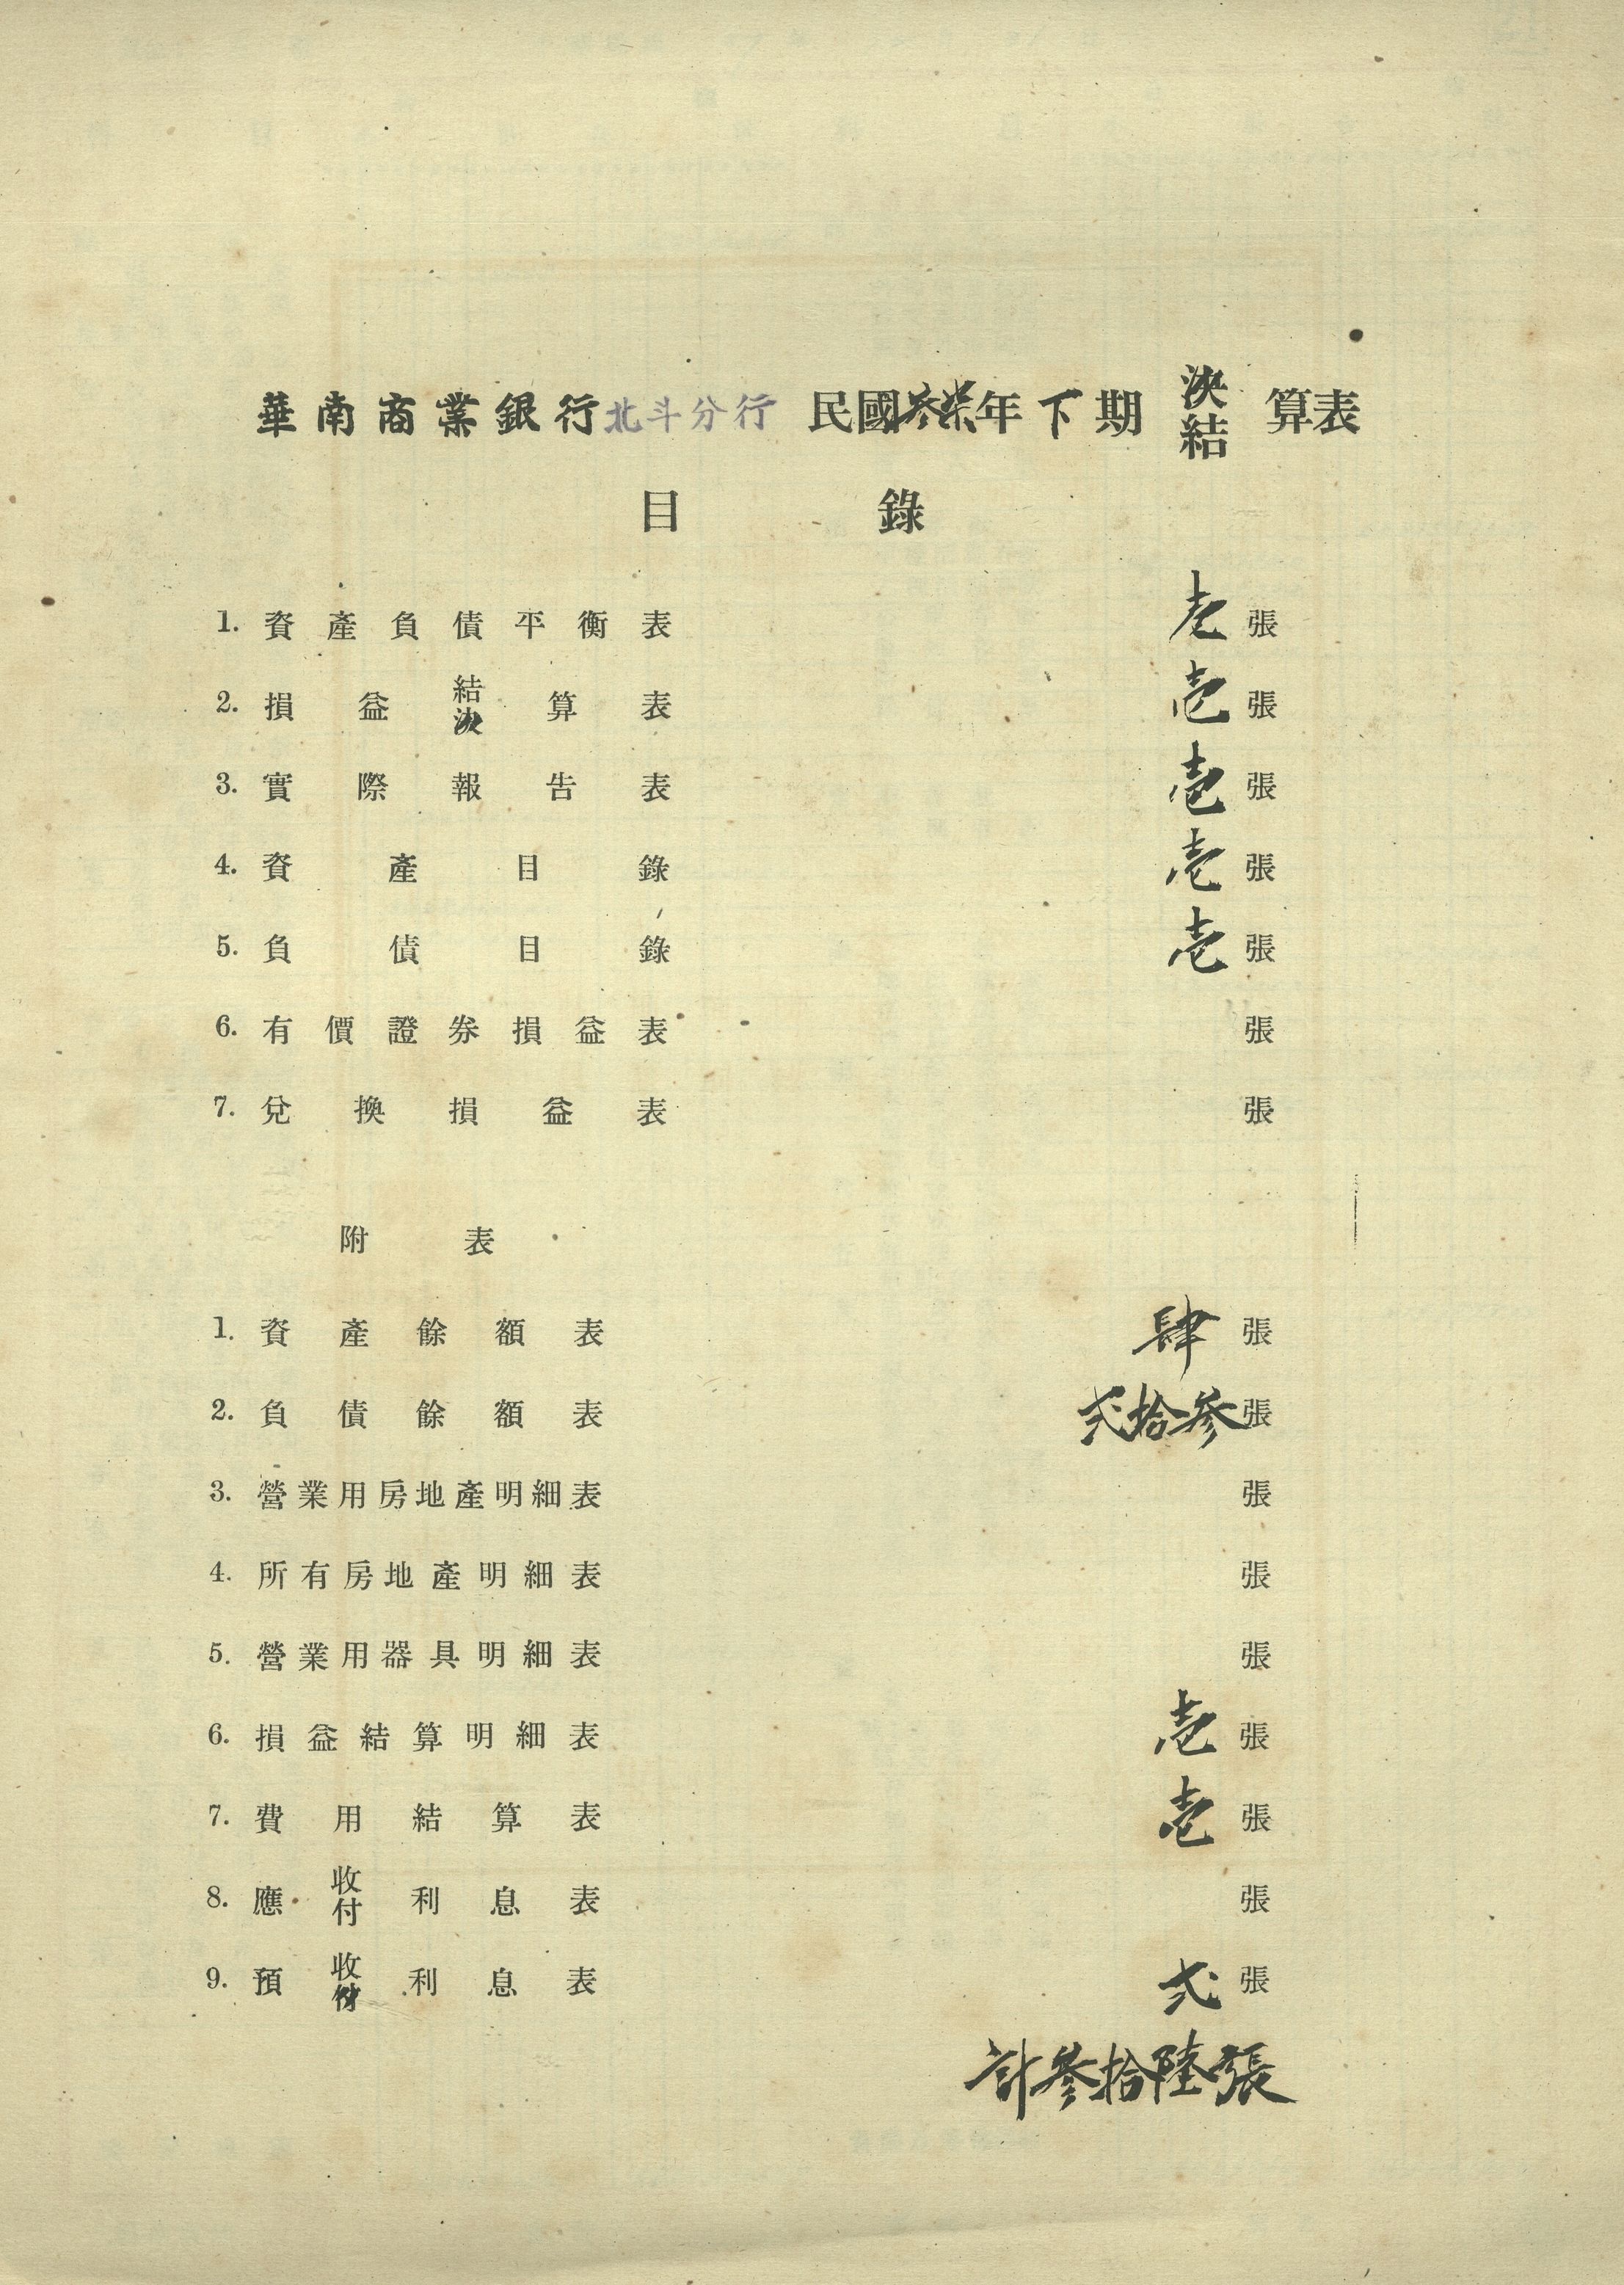 華南商業銀行北斗分行 民國叁柒年下期 決結 算表
目錄
1. 資產負債平衡表 壱張
2. 損益結決算表 壱張
3. 實際報告表 壱張
4. 資產目錄 壱張
5. 負債目錄 壱張
6. 有價證券損益表 張
7. 兌換損益表 張
附表
1. 資產餘額表 肆張
2. 負債餘額表 弍拾叁張
3. 營業用房地產明細表 張
4. 所有房地產明細表 張
5. 營業用器具明細表 張
6. 損益結算明細表 壱張
7. 費用結算表 壱張
8. 應收付利息表 張
9. 預收付利息表 弍張
計叁拾陸張